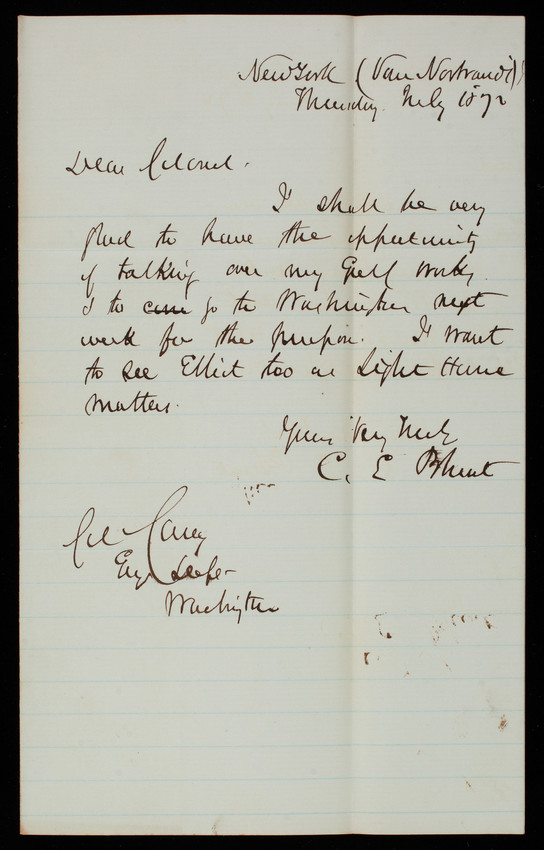 New York (Van Nostrand's)
Thursday July 1872
Dear Colonel.
I shall be very
glad to have the opportunity
of talking over my Gulf works
& to come go to Washington next
week for the purpose. I want
to see Elliot too on Light House
matters.
Yours Very Truly
C. E. Blunt
Col Casey
Eng Dept
Washington